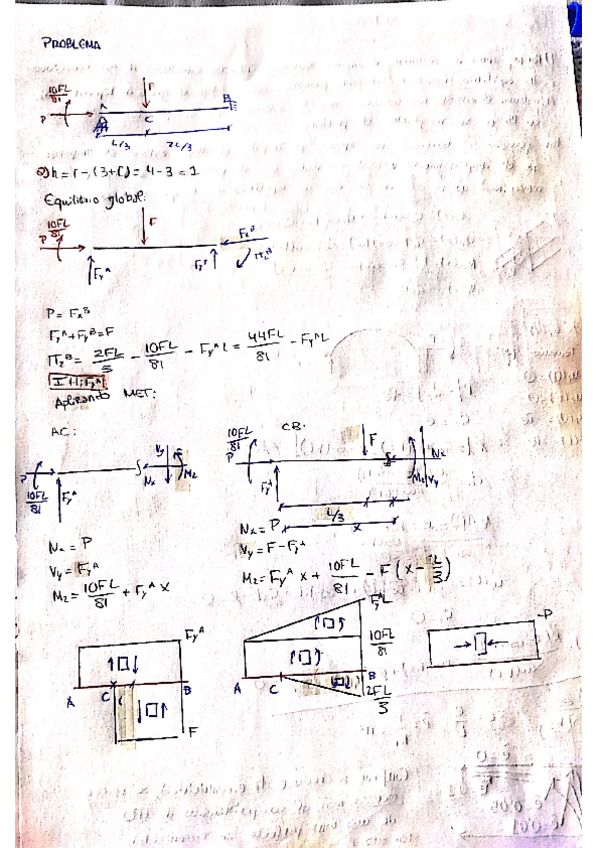 PROBLEMA
10FL/81
F
P
A
B
C
L/3
2L/3
a) h = r - (3+C) = 4 - 3 = 1
Equilibrio global:
10FL/81
F
P
Fx^B
Fy^A
Fy^B
Mz^B
P = Fx^B
Fy^A + Fy^B = F
Mz^B = 2FL/3 - 10FL/81 - Fy^A L = 44FL/81 - Fy^A L
I H: Fy^A
Aplicando MET:
AC:
CB:
10FL/81
P
Fy^A
Vy
Nx
Mz
10FL/81
P
F
Fy^A
Nx
Mz
Vy
L/3
x
Nx = P
Vy = Fy^A
Mz = 10FL/81 + Fy^A x
Nx = P
Vy = F - Fy^A
Mz = Fy^A x + 10FL/81 - F (x - L/3)
Fy^A
A
C
B
F
Fy^A L
10FL/81
A
C
B
2FL/3
-P